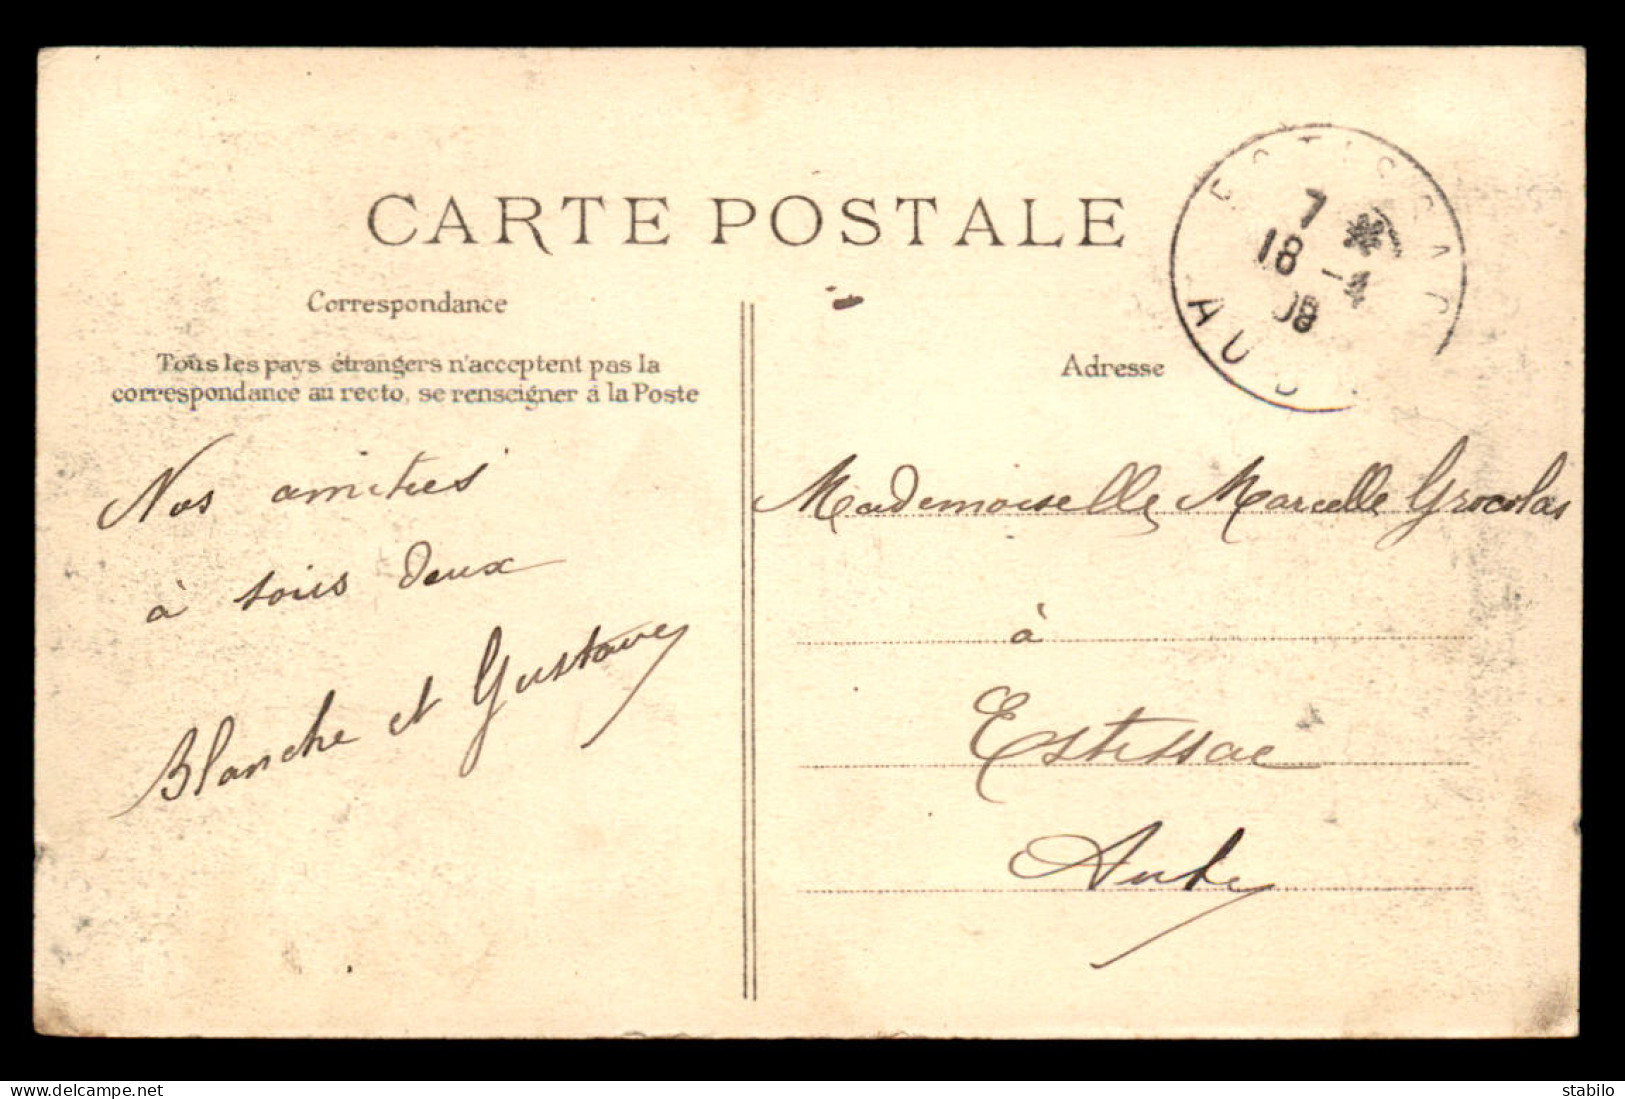 CARTE POSTALE
Correspondance
Tous les pays étrangers n'acceptent pas la
correspondance au recto, se renseigner à la Poste
Nos amitiés
à tous deux
Blanche et Gustave
Adresse
Mademoiselle Marcelle Grocolas
à
Estissac
Aube
ESTISSAC
7
18 -4
08
AUBE
www.delcampe.net
stabilo